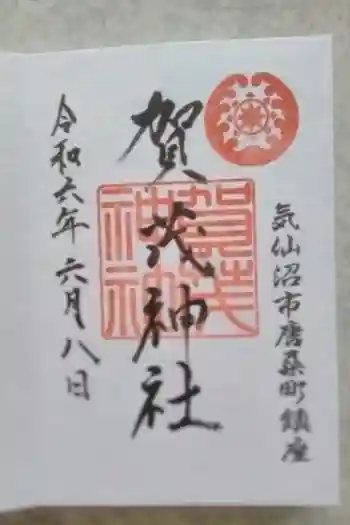 気仙沼市唐桑町鎮座
賀茂神社
賀茂
神社
令和六年六月八日